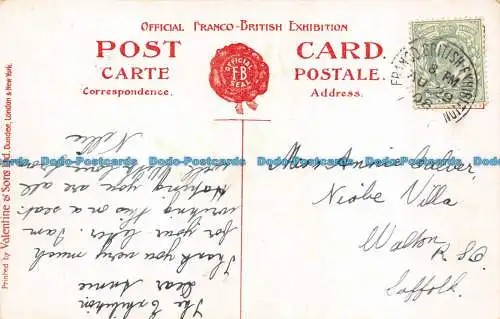 OFFICIAL FRANCO-BRITISH EXHIBITION
POST CARD
CARTE POSTALE
Correspondence. Address.
OFFICIAL
F-B
SEAL
FRANCO-BRITISH EXHIBITION
8 PM
08
Printed by Valentine & Sons Ltd. Dundee, London & New York.
The Exhibition
Dear Annie
Thank you very much
for your letter. I am
writing this on a seat.
Hoping you are all
well. With love from
Nellie
Miss Annie
Niobe Villa
Walton
R. S. O.
Suffolk.
Dodo-Postcards Dodo-Postcards Dodo-Postcards Dodo-Postcards Dodo-Postcards